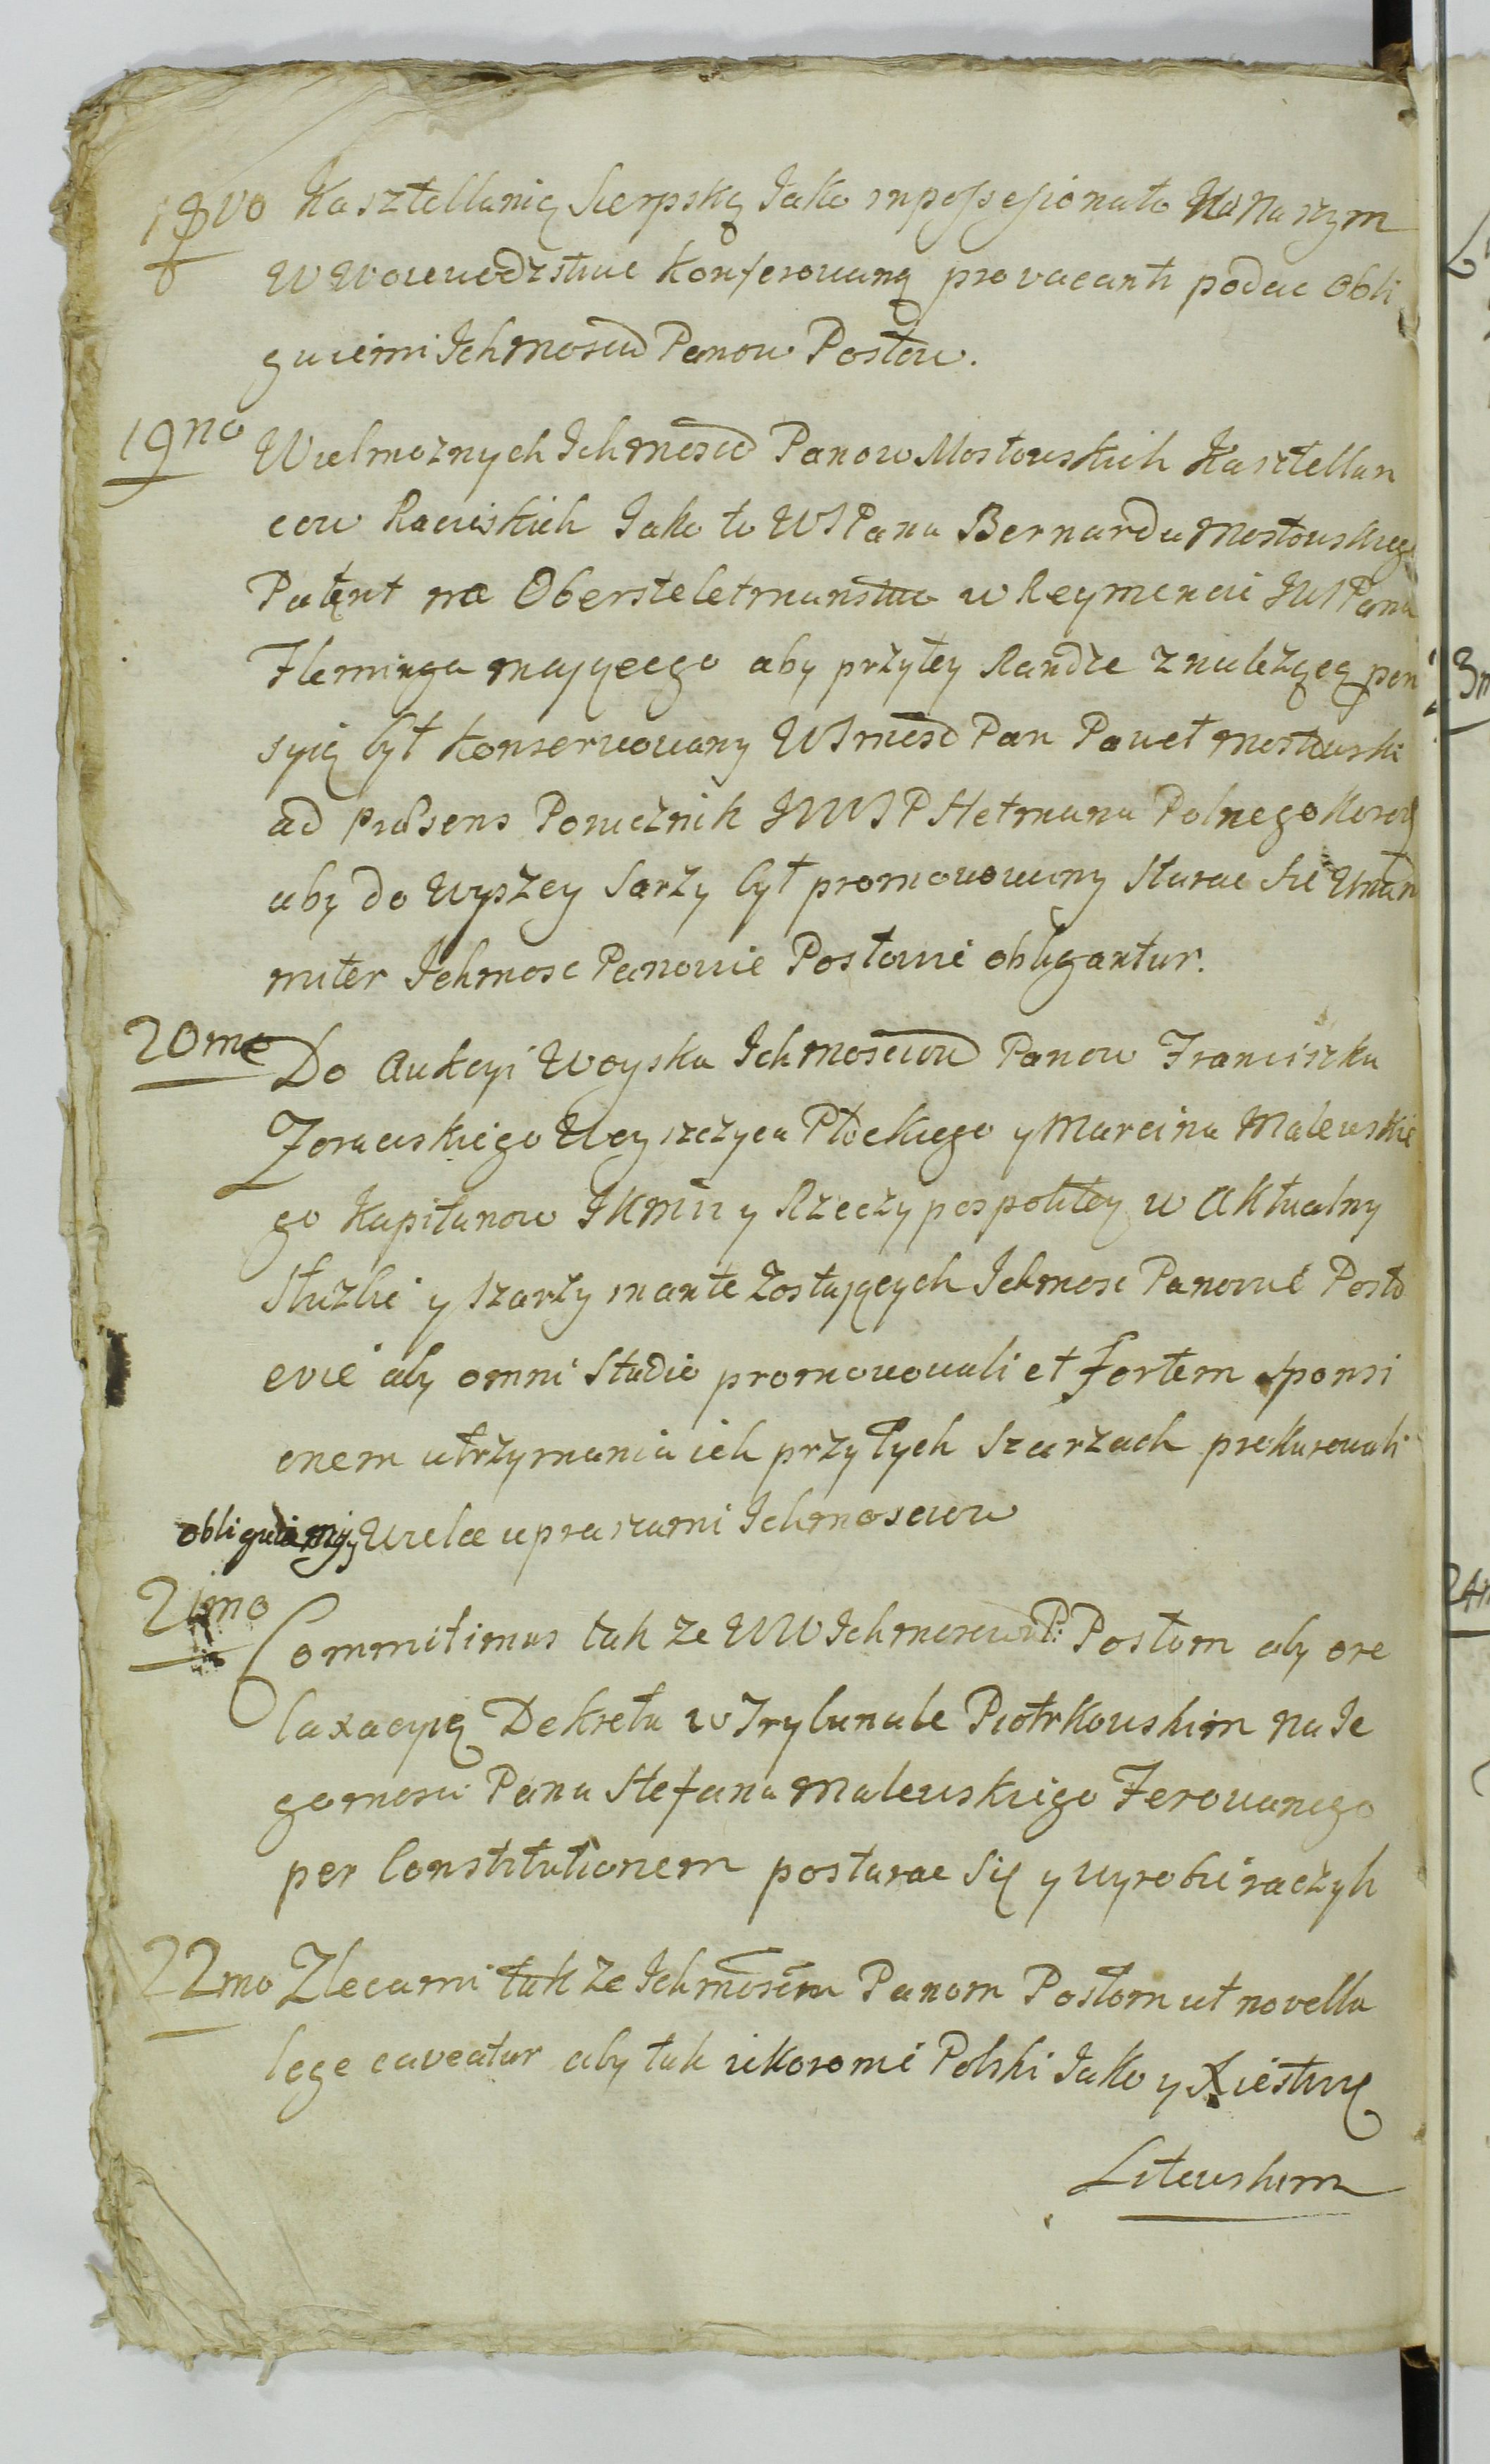 18vo Kasztellanią Sierpską Jako inpossesionato Na Naszym
W Woiewodztwie Konferowaną pro vacanti podac Obli
guiemi Ichmosciow Panow Posłow.
19no Wielmoznych Ichmosciow Panow Mostowskich Kasztellan
cow Raciąskich Jako to WJ Pana Bernarda Mostowskiego
Patent na Obersteletmanstwo w Reymencie JW JPana
Fleminga maiącego aby przytey Randze znależącą pen
syią był Konserwowany WJmosc Pan Paweł Mostowski
ad præsens Porucznik JWW JP Hetmana Polnego Koron
aby do Wyszey Sarży był promowowany Starac Sie Unani
miter Ichmosc Panowie Posłowie obligantur.
20mo Do Aukcyi Woyska Ichmosciow Panow Franciszka
Zorawskiego Woyszczyca Płockiego y Marcina Malewskie
go Kapitanow JKMci y Rzeczypospolitey w Aktualny
Służbie y szarży mante Zostaiących Ichmosc Panowie Posło
wie aby omni Studio promowowali et fortem sponsi
onem utrzymania ich przy tych Szarzach prokurowali
obliguiemy y Wielce upraszami Ichmosciow
21mo Committimus tak ze WW Ichmosciow P: Posłom aby o re
laxacyią Dekretu w Trybunale Piotrkowskim na Je
gomosci Pana Stefana Malewskiego Ferowanego
per Constitutionem postarac Się y wyrobic raczyli
22mo Zlecami tak ze Ichmosciom Panom Posłom ut novella
lege caveatur aby tak w Koronie Polski Jako y Xięstwę
Litewskim